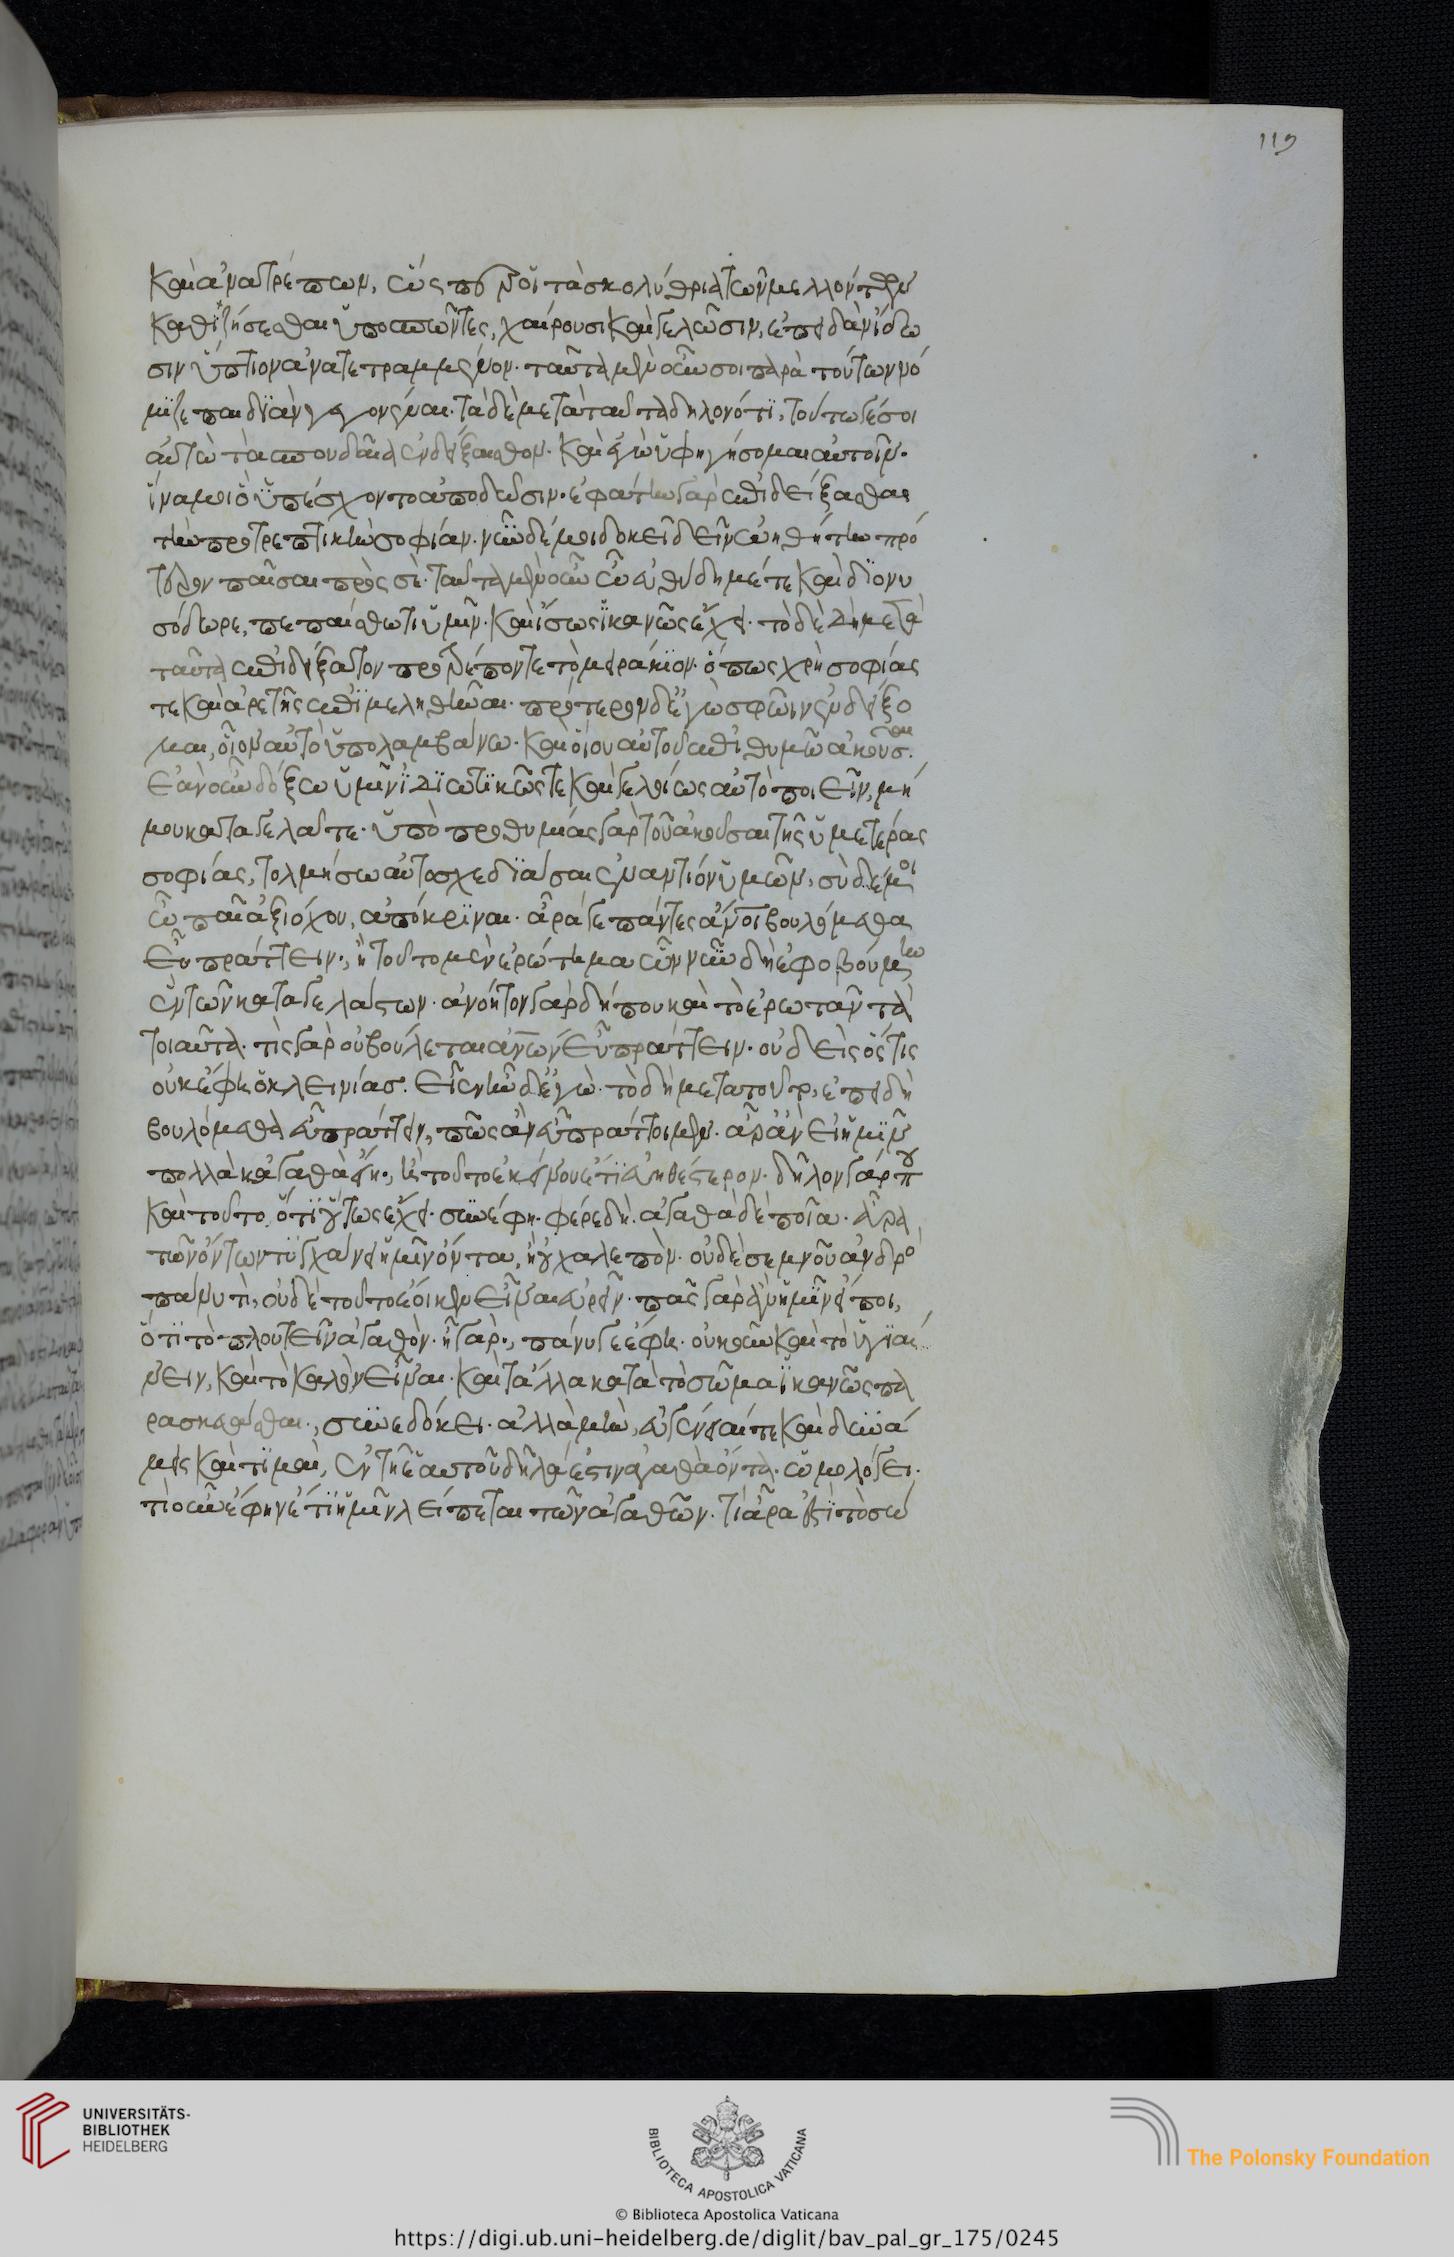 καὶ ἀνατρέπων, ὥσπερ οἱ τὰ σκολύθρια τῶν μελλόντων
καθιζήσεσθαι ὑποσπῶντες, χαίρουσι καὶ γελῶσιν, ἐπειδὰν ἴδω
σιν ὕπτιον ἀνατετραμμένον. ταῦτα μὲν οὖν σοι παρὰ τούτων νό
μιζε παιδϊὰν γεγονέναι. τὰ δὲ μετὰ ταῦτα δηλονότϊ, τούτω γέ σοι
αὐτὼ τὰ σπουδαῖα ἐνδείξαισθον. καὶ ἐγὼ ὑφηγήσομαι αὐτοῖν.
ἵνα μοι ὃ ὑπέσχοντο ἀποδώσιν. ἐφάτην γὰρ ἐπιδείξασθαι
τὴν προτρεπτικὴν σοφίαν. νῦν δέ μοι δοκεῖ δεῖν ᾠηθήτην πρό
τερον παῖσαι πρὸς σέ. ταῦτα μὲν οὖν ὦ εὐθύδημέ τε καὶ διονυ
σόδωρε, πεπαίσθω τι ὑμῖν. καὶ ἴσως ἱκανῶς ἔχει. τὸ δὲ δὴ μετὰ
ταῦτα ἐπιδείξατον προτρέποντε τὸ μειράκϊον. ὅπως χρὴ σοφίας
τε καὶ ἀρετῆς ἐπιμεληθῆναι. πρότερον δ' ἐγὼ σφῶιν ἐνδείξο
μαι, οἷον αὐτὸ ὑπολαμβάνω. καὶ οἵου αὐτοῦ ἐπιθυμῶ ἀκοῦσαι.
ἐὰν οὖν δόξω ὑμῖν ἰδϊωτϊκῶς τε καὶ γελοίως αὐτὸ ποιεῖν, μή
μου καταγελᾶτε. ὑπὸ προθυμίας γὰρ τοῦ ἀκοῦσαι τῆς ὑμετέρας
σοφίας, τολμήσω αὐτοσχεδϊάσαι ἐναντίον ὑμῶν, σὺ δέ μοι
ὦ παῖ ἀξιόχου, ἀπόκρϊναι. ἆρά γε πάντες ἄνοι βουλόμεθα
εὖ πράττειν., ἢ τοῦτο μὲν ἐρώτημα ὧν νῦν δὴ ἐφοβούμην
ἓν τῶν καταγελάστων. ἀνόητον γὰρ δήπου καὶ τὸ ἐρωτᾶν τὰ
τοιαῦτα. τὶς γὰρ οὐ βούλεται ἀνων εὖ πράττειν. οὐδεὶς ὅστις
οὐκ ἔφη ὁ κλεινίας. εἶεν ἦν δ' ἐγώ. τὸ δὴ μετὰ τοῦτο, ἐπειδὴ
βουλόμεθα εὖ πράττειν, πῶς ἂν εὖ πράττοιμεν. ἆρ' ἂν εἰ ἡμῖν
πολλὰ κἀγαθὰ εἴη., ἢ τοῦτο ἐκείνου ἔτϊ εὐηθέστερον. δῆλον γάρ που
καὶ τοῦτο ὅτϊ οὕτως ἔχει. συνέφη. φέρε δή. ἀγαθὰ δὲ ποῖα. ἄρα
τῶν ὄντων τυγχάνει ἡμῖν ὄντα, ἢ οὐ χαλεπὸν. οὐδὲ σεμνοῦ ἀνδρὸ
πάνυ τὶ, οὐδὲ τοῦτο ἔοικεν εἶναι εὑρεῖν. πᾶς γὰρ ἂν ἡμῖν εἴποι,
ὅτϊ τὸ πλουτεῖν ἀγαθόν. ἦ γάρ., πάνυ γε ἔφη. οὐκοῦν καὶ τὸ ὑγϊαί
νειν, καὶ τὸ καλὸν εἶναι. καὶ τἆλλα κατὰ τὸ σῶμα ἱκανῶς πα
ρασκευάσθαι., συνεδόκει. ἀλλὰ μὴν, εὐγένειαί τε καὶ δυνά
μεις καὶ τϊμαὶ, ἐν τῆ ἑαυτοῦ δῆλά ἐστιν ἀγαθὰ ὄντα. ὡμολόγει.
τὶ οὖν ἔφην ἔτϊ ἡμῖν λείπεται τῶν ἀγαθῶν. τί ἄρα ἐστὶ τὸ σώ
119
UNIVERSITÄTS-
BIBLIOTHEK
HEIDELBERG
BIBLIOTECA APOSTOLICA VATICANA
The Polonsky Foundation
© Biblioteca Apostolica Vaticana
https://digi.ub.uni-heidelberg.de/diglit/bav_pal_gr_175/0245